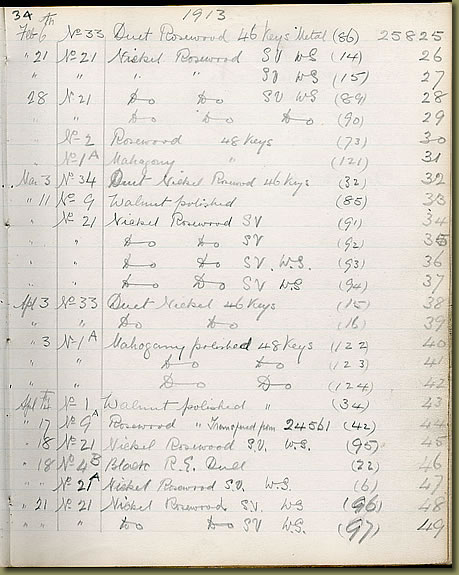 34 1913
Feb 6th No 33 Duet Rosewood 46 Keys Metal (86) 25825
" 21 No 21 Nickel Rosewood SV WS (14) 26
" " " " SV WS (15) 27
28 No 21 Do Do SV WS (89) 28
" " Do Do Do (90) 29
No 2 Rosewood 48 Keys (73) 30
No 1A Mahogany " (121) 31
Mar 3 No 34 Duet Nickel Rosewood 46 Keys (32) 32
" 11 No 9 Walnut polished (85) 33
" No 21 Nickel Rosewood SV (91) 34
" " Do Do SV (92) 35
" " Do Do SV. W.S. (93) 36
" " Do Do SV WS (94) 37
Apl 3 No 33 Duet Nickel 46 Keys (15) 38
" " Do Do (16) 39
" 3 No 1A Mahogany polished 48 Keys (122) 40
" " Do Do (123) 41
" " Do Do (124) 42
Apl No 1 Walnut polished " (34) 43
" 17 No 9A Rosewood " Transferred from 24561 (42) 44
" 18 No 21 Nickel Rosewood S.V. W.S. (95) 45
" 18 No 4B Black R.E. Duet (22) 46
" No 21A Nickel Rosewood S.V. W.S. (6) 47
" 21 No 21 Nickel Rosewood S.V. WS (96) 48
" " " Do Do SV WS (97) 49